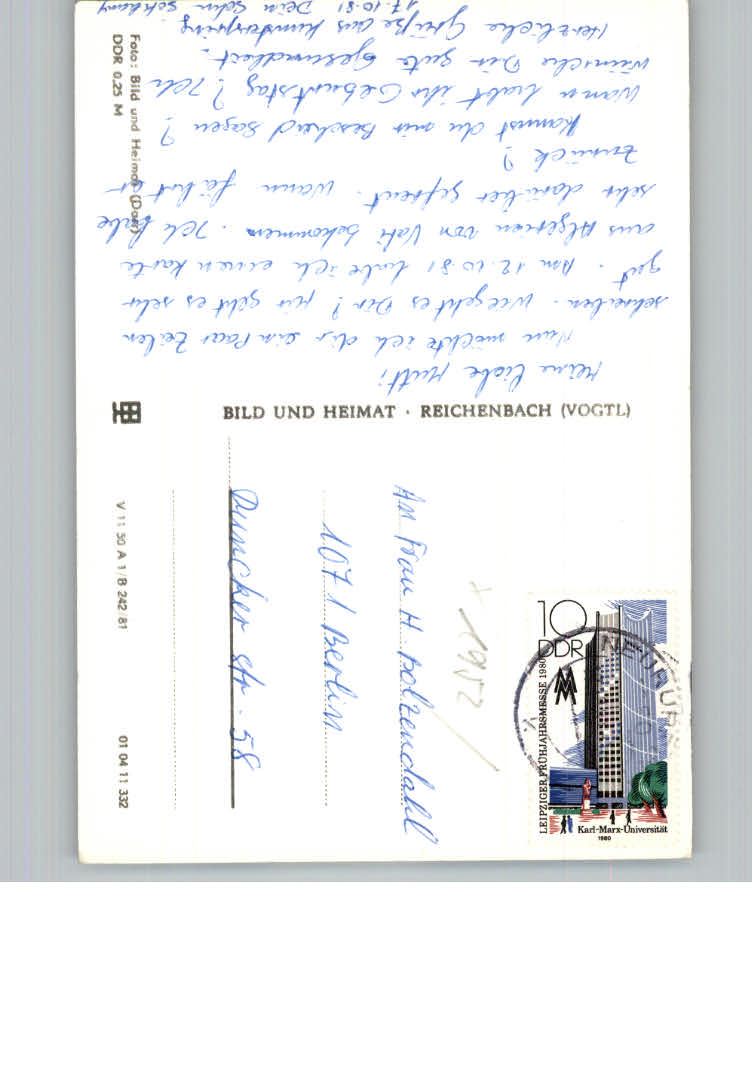 Meine liebe Mutti
Nun möchte ich dir ein Paar Zeilen
schreiben. Wie geht es Dir? Mir geht es sehr
gut. Am 12.10.81 habe ich einen Karte
aus Algerien von Vati bekommen. Ich habe
sehr darüber gefreut. Wann fährt er
zurück?
Kannst du mir Bescheid sagen?
Wann habt ihr Geburtstag? Ich
wünsche Dir gute Gesundheit.
Herzliche Grüße aus
17.10.81 Dein Sohn
Foto: Bild und Heimat
DDR 0,25 M
BILD UND HEIMAT · REICHENBACH (VOGTL)
V 11 50 A 1/B 242/81
01 04 11 332
An Frau H. Bolzendahl
1071 Berlin
Duncker str. 58
10
DDR
LEIPZIGER FRÜHJAHRSMESSE 1980
MM
Karl-Marx-Universität
1980
NEURUPP